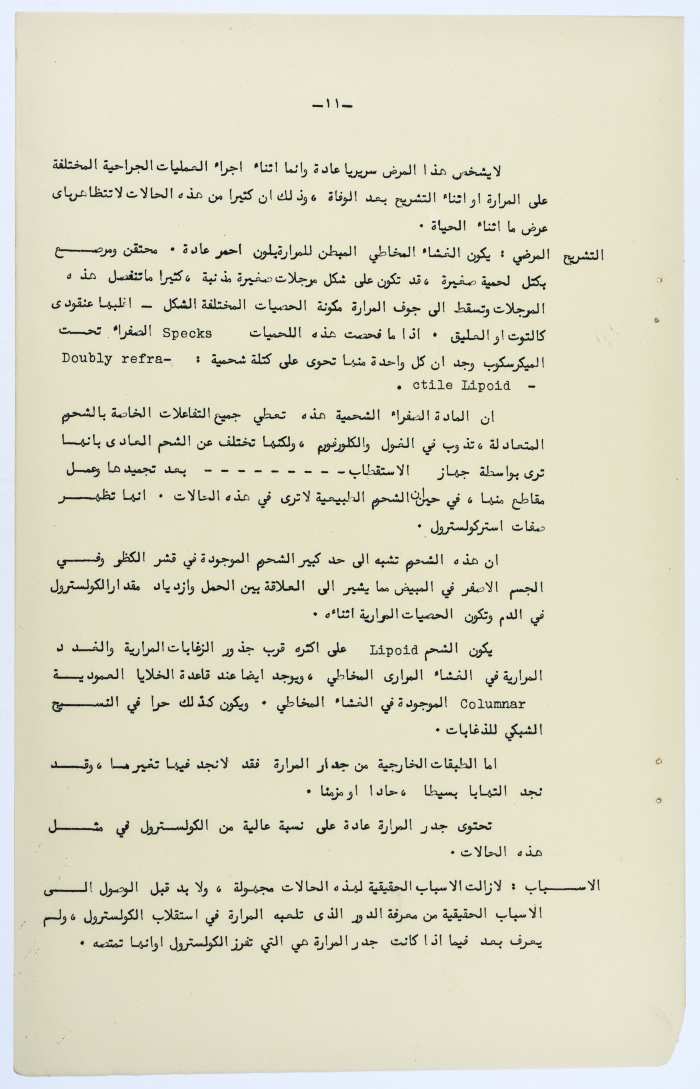 -١١-
لايشخص هذا المرض سريريا عادة وانما اثناء اجراء العمليات الجراحية المختلفة
على المرارة او اثناء التشريح بعد الوفاة ، وذلك ان كثيرا من هذه الحالات لاتتظاهرباى
عرض ما اثناء الحياة ٠
التشريح المرضي : يكون الغشاء المخاطي المبطن للمرارةبلون احمر عادة ٠ محتقن ومرصـــع
بكتل لحمية صغيرة ، قد تكون على شكل مرجلات صغيرة مذنبة ، كثيرا ماتنفصل هذه
المرجلات وتسقط الى جوف المرارة مكونة الحصيات المختلفة الشكل – اغلبها عنقودى
كالتوت او العليق ٠ اذا ما فحصت هذه اللحميات Specks الصفراء تحــت
الميكرسكوب وجد ان كل واحدة منها تحوى على كتلة شحمية : Doubly refra-
- ctile Lipoid ٠
ان المادة الصفراء الشحمية هذه تعطي جميع التفاعلات الخاصة بالشحوم
المتعادلة ، تذوب في الغول والكلورفورم ، ولكنها تختلف عن الشحم العادى بانهــا
ترى بواسطة جهاز الاستقطاب - - - - - - - - - بعد تجميدها وعمل
مقاطع منها ، في حين ان الشحوم الطبيعية لاترى في هذه الحالات ٠ انها تظهــر
صفات استركولسترول ٠
ان هذه الشحوم تشبه الى حد كبير الشحوم الموجودة في قشر الكظر وفـــي
الجسم الاصفر في المبيض مما يشير الى العلاقة بين الحمل وازدياد مقدارالكولسترول
في الدم وتكون الحصيات المرارية اثناءه ٠
يكون الشحم Lipoid على اكثره قرب جذور الزغابات المرارية والغـدد
المرارية في الغشاء المرارى المخاطي ، ويوجد ايضا عند قاعدة الخلايا العموديــة
Columnar الموجودة في الغشاء المخاطي ٠ ويكون كذلك حرا في النســيج
الشبكي للذغابات ٠
اما الطبقات الخارجية من جدار المرارة فقد لانجد فيها تغيرمــا ، وقـــد
نجد التهابا بسيطا ، حادا او مزمنا ٠
تحتوى جدر المرارة عادة على نسبة عالية من الكولسترول في مثـــل
هذه الحالات ٠
الاســـباب : لازالت الاسباب الحقيقية لهذه الحالات مجهولة ، ولابد قبل الوصول الـــى
الاسباب الحقيقية من معرفة الدور الذى تلعبه المرارة في استقلاب الكولسترول ، ولـم
يعرف بعد فيما اذا كانت جدر المرارة هي التي تفرز الكولسترول اوانها تمتصه ٠